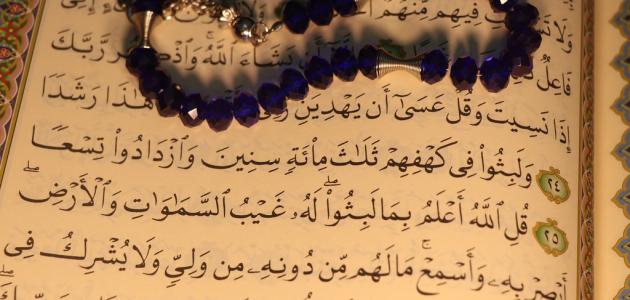 وَلَا فِيهِم مِّنْهُمْ
فَاعِلٌ أَن يَشَآءَ ٱللَّهُ ۚ وَٱذْكُر رَّبَّكَ
إِذَا نَسِيتَ وَقُلْ عَسَىٰٓ أَن يَهْدِيَنِ هَٰذَا رَشَدًا
٢٤ وَلَبِثُوا۟ فِى كَهْفِهِمْ ثَلَٰثَ مِا۟ئَةٍ سِنِينَ وَٱزْدَادُوا۟ تِسْعًا
٢٥ قُلِ ٱللَّهُ أَعْلَمُ بِمَا لَبِثُوا۟ ۖ لَهُۥ غَيْبُ ٱلسَّمَٰوَٰتِ وَٱلْأَرْضِ ۖ
أَبْصِرْ بِهِۦ وَأَسْمِعْ ۚ مَا لَهُم مِّن دُونِهِۦ مِن وَلِىٍّ وَلَا يُشْرِكُ فِى